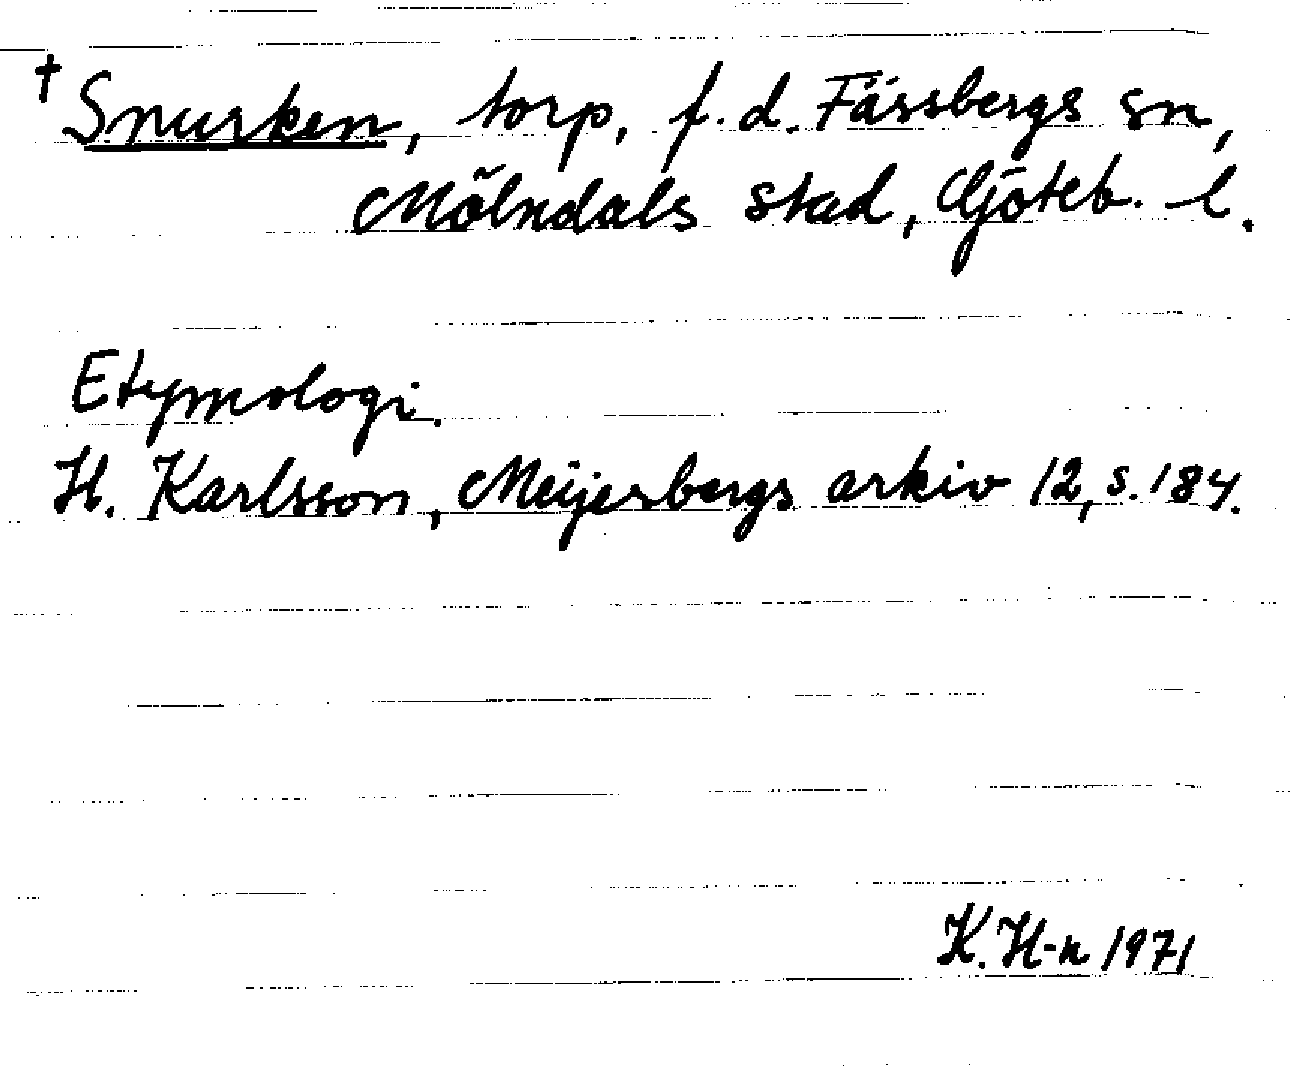 † Snurken, torp, f. d. Fässbergs sn,
Mölndals stad, Göteb. l.
Etymologi.
H. Karlsson, Meijerbergs arkiv 12, s. 184.
K. H-n 1971